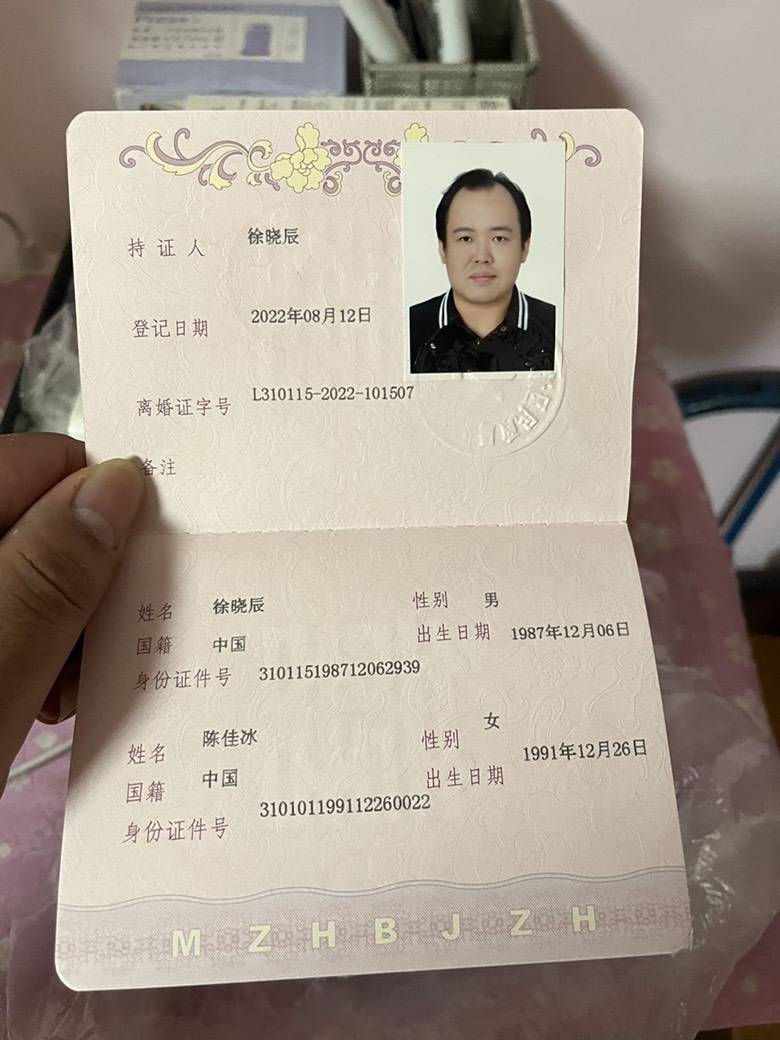 持证人 徐晓辰
登记日期 2022年08月12日
离婚证字号 L310115-2022-101507
备注
姓名 徐晓辰 性别 男
国籍 中国 出生日期 1987年12月06日
身份证件号 310115198712062939
姓名 陈佳冰 性别 女
国籍 中国 出生日期 1991年12月26日
身份证件号 310101199112260022
MZHBJZH